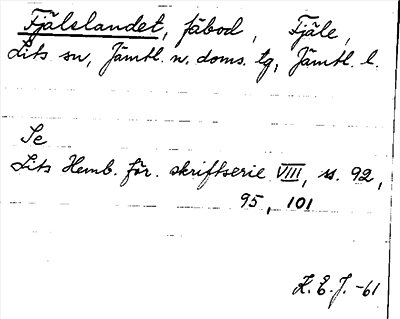 Fjälslandet, fäbod, Fjäle,
Lits sn, Jämtl. n. doms. tg, Jämtl. l.
Se
Lits Hemb. för. skriftserie VIII, ss. 92,
95, 101
K. E. J. -61